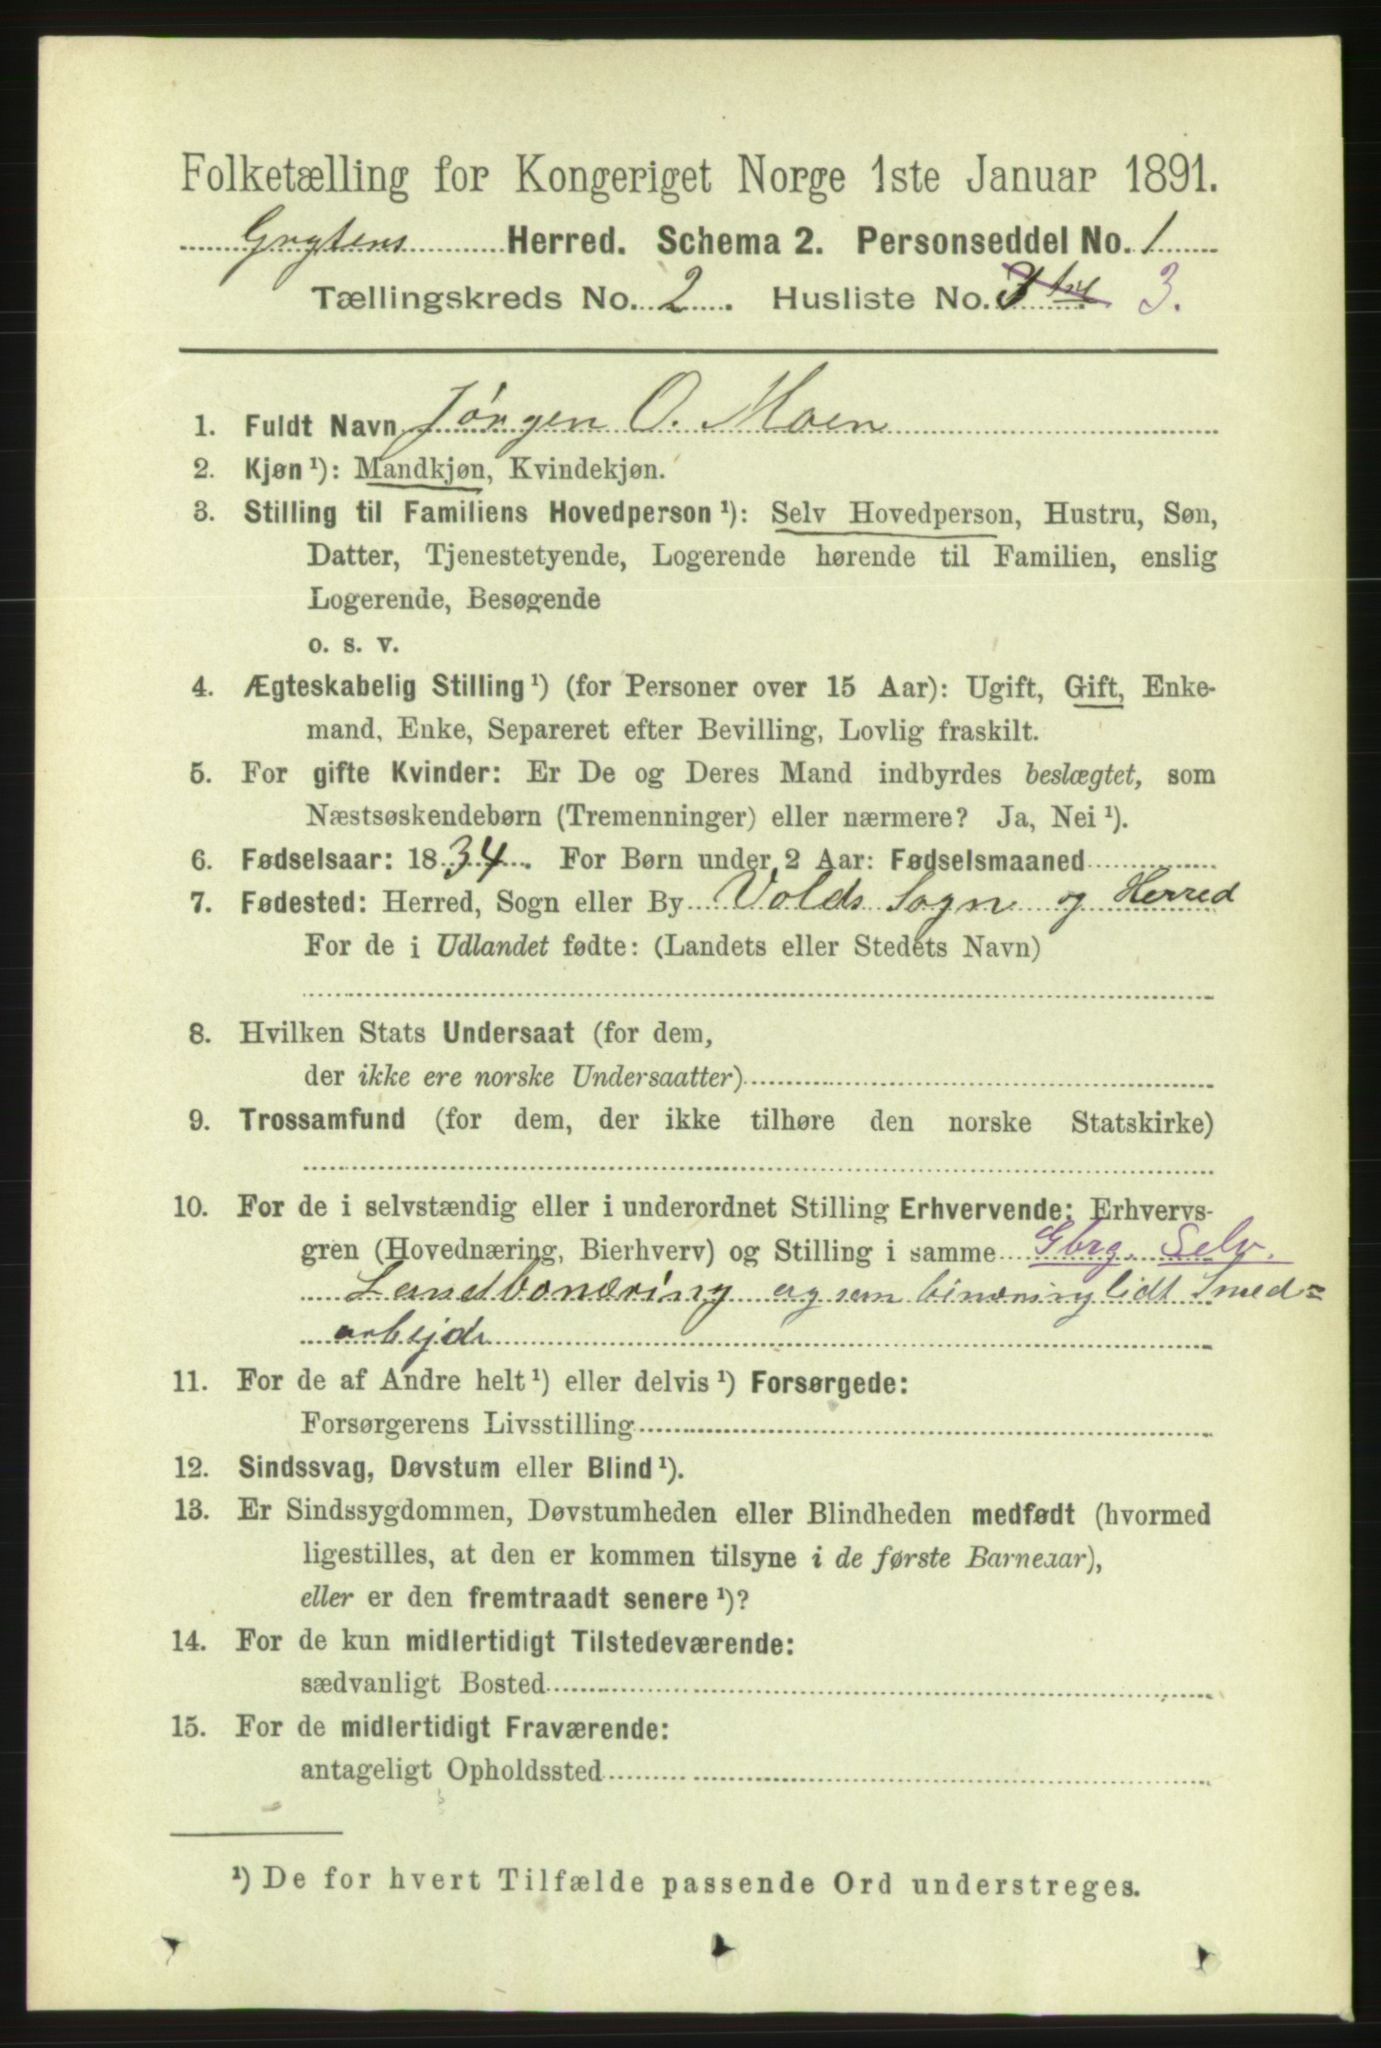 Folketælling for Kongeriget Norge 1ste Januar 1891.
Grytens Herred. Schema 2. Personseddel No. 1
Tællingskreds No. 2. Husliste No. 3.
1. Fuldt Navn Jørgen O. Moen
2. Kjøn ¹): Mandkjøn, Kvindekjøn.
3. Stilling til Familiens Hovedperson ¹): Selv Hovedperson, Hustru, Søn,
Datter, Tjenestetyende, Logerende hørende til Familien, enslig
Logerende, Besøgende
o. s. v.
4. Ægteskabelig Stilling ¹) (for Personer over 15 Aar): Ugift, Gift, Enke-
mand, Enke, Separeret efter Bevilling, Lovlig fraskilt.
5. For gifte Kvinder: Er De og Deres Mand indbyrdes beslægtet, som
Næstsøskendebørn (Tremenninger) eller nærmere? Ja, Nei ¹).
6. Fødselsaar: 1834. For Børn under 2 Aar: Fødselsmaaned
7. Fødested: Herred, Sogn eller By Volds Sogn og Herred
For de i Udlandet fødte: (Landets eller Stedets Navn)
8. Hvilken Stats Undersaat (for dem,
der ikke ere norske Undersaatter)
9. Trossamfund (for dem, der ikke tilhøre den norske Statskirke)
10. For de i selvstændig eller i underordnet Stilling Erhvervende: Erhvervs-
gren (Hovednæring, Bierhverv) og Stilling i samme Gbrg. Selv.
Landbonæring og som binæring lidt Smed=
arbejde
11. For de af Andre helt ¹) eller delvis ¹) Forsørgede:
Forsørgerens Livsstilling
12. Sindssvag, Døvstum eller Blind ¹).
13. Er Sindssygdommen, Døvstumheden eller Blindheden medfødt (hvormed
ligestilles, at den er kommen tilsyne i de første Barneaar),
eller er den fremtraadt senere ¹)?
14. For de kun midlertidigt Tilstedeværende:
sædvanligt Bosted
15. For de midlertidigt Fraværende:
antageligt Opholdssted
¹) De for hvert Tilfælde passende Ord understreges.